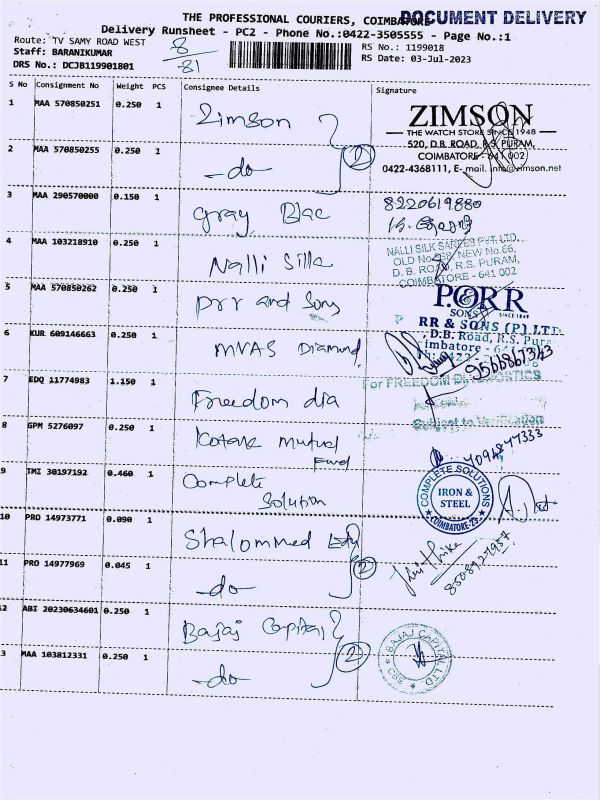 THE PROFESSIONAL COURIERS, COIMBATORE
DOCUMENT DELIVERY
Delivery Runsheet - PC2 - Phone No.:0422-3505555 - Page No.:1
Route: TV SAMY ROAD WEST
Staff: BARANIKUMAR
DRS No.: DCJB119901801
8/81
RS No.: 1199018
RS Date: 03-Jul-2023
S No Consignment No Weight PCS Consignee Details Signature
1 MAA 570850251 0.250 1 Zimson
ZIMSON
THE WATCH STORE SINCE 1948
520, D.B. ROAD, R.S. PURAM,
COIMBATORE - 641 002
0422-4368111, E-mail. info@zimson.net
2 MAA 570850255 0.250 1 -do- 2
3 MAA 290570000 0.150 1 Gray Blac
8220619880
4 MAA 103218910 0.250 1 Nalli Silk
NALLI SILK SAREES PVT. LTD.
OLD No. NEW No.66,
D. B. ROAD, R.S. PURAM,
COIMBATORE - 641 002
5 MAA 570850262 0.250 1 prr and Sons
P.ORR
SONS SINCE 1849
P RR & SONS (P) LTD
D.B. Road, R.S. Pura
imbatore - 64
6 KUR 609146663 0.250 1 MVAS Diamond
9566867343
7 EDQ 11774983 1.150 1 Freedom dia
For FREEDOM DIAGNOSTICS
Subject to Verification
8 GPM 5276097 0.250 1 Kotak Mutual
Fund
7094877333
9 TMI 30197192 0.460 1 Complete
Solution
COMPLETE SOLUTIONS
IRON &
STEEL
COIMBATORE-25
10 PRO 14973771 0.090 1 Shalommed
11 PRO 14977969 0.045 1 -do- 2
8508927957
12 ABI 20230634601 0.250 1 Bajaj Capital
13 MAA 103812331 0.250 1 -do- 2
BAJAJ CAPITAL LTD.